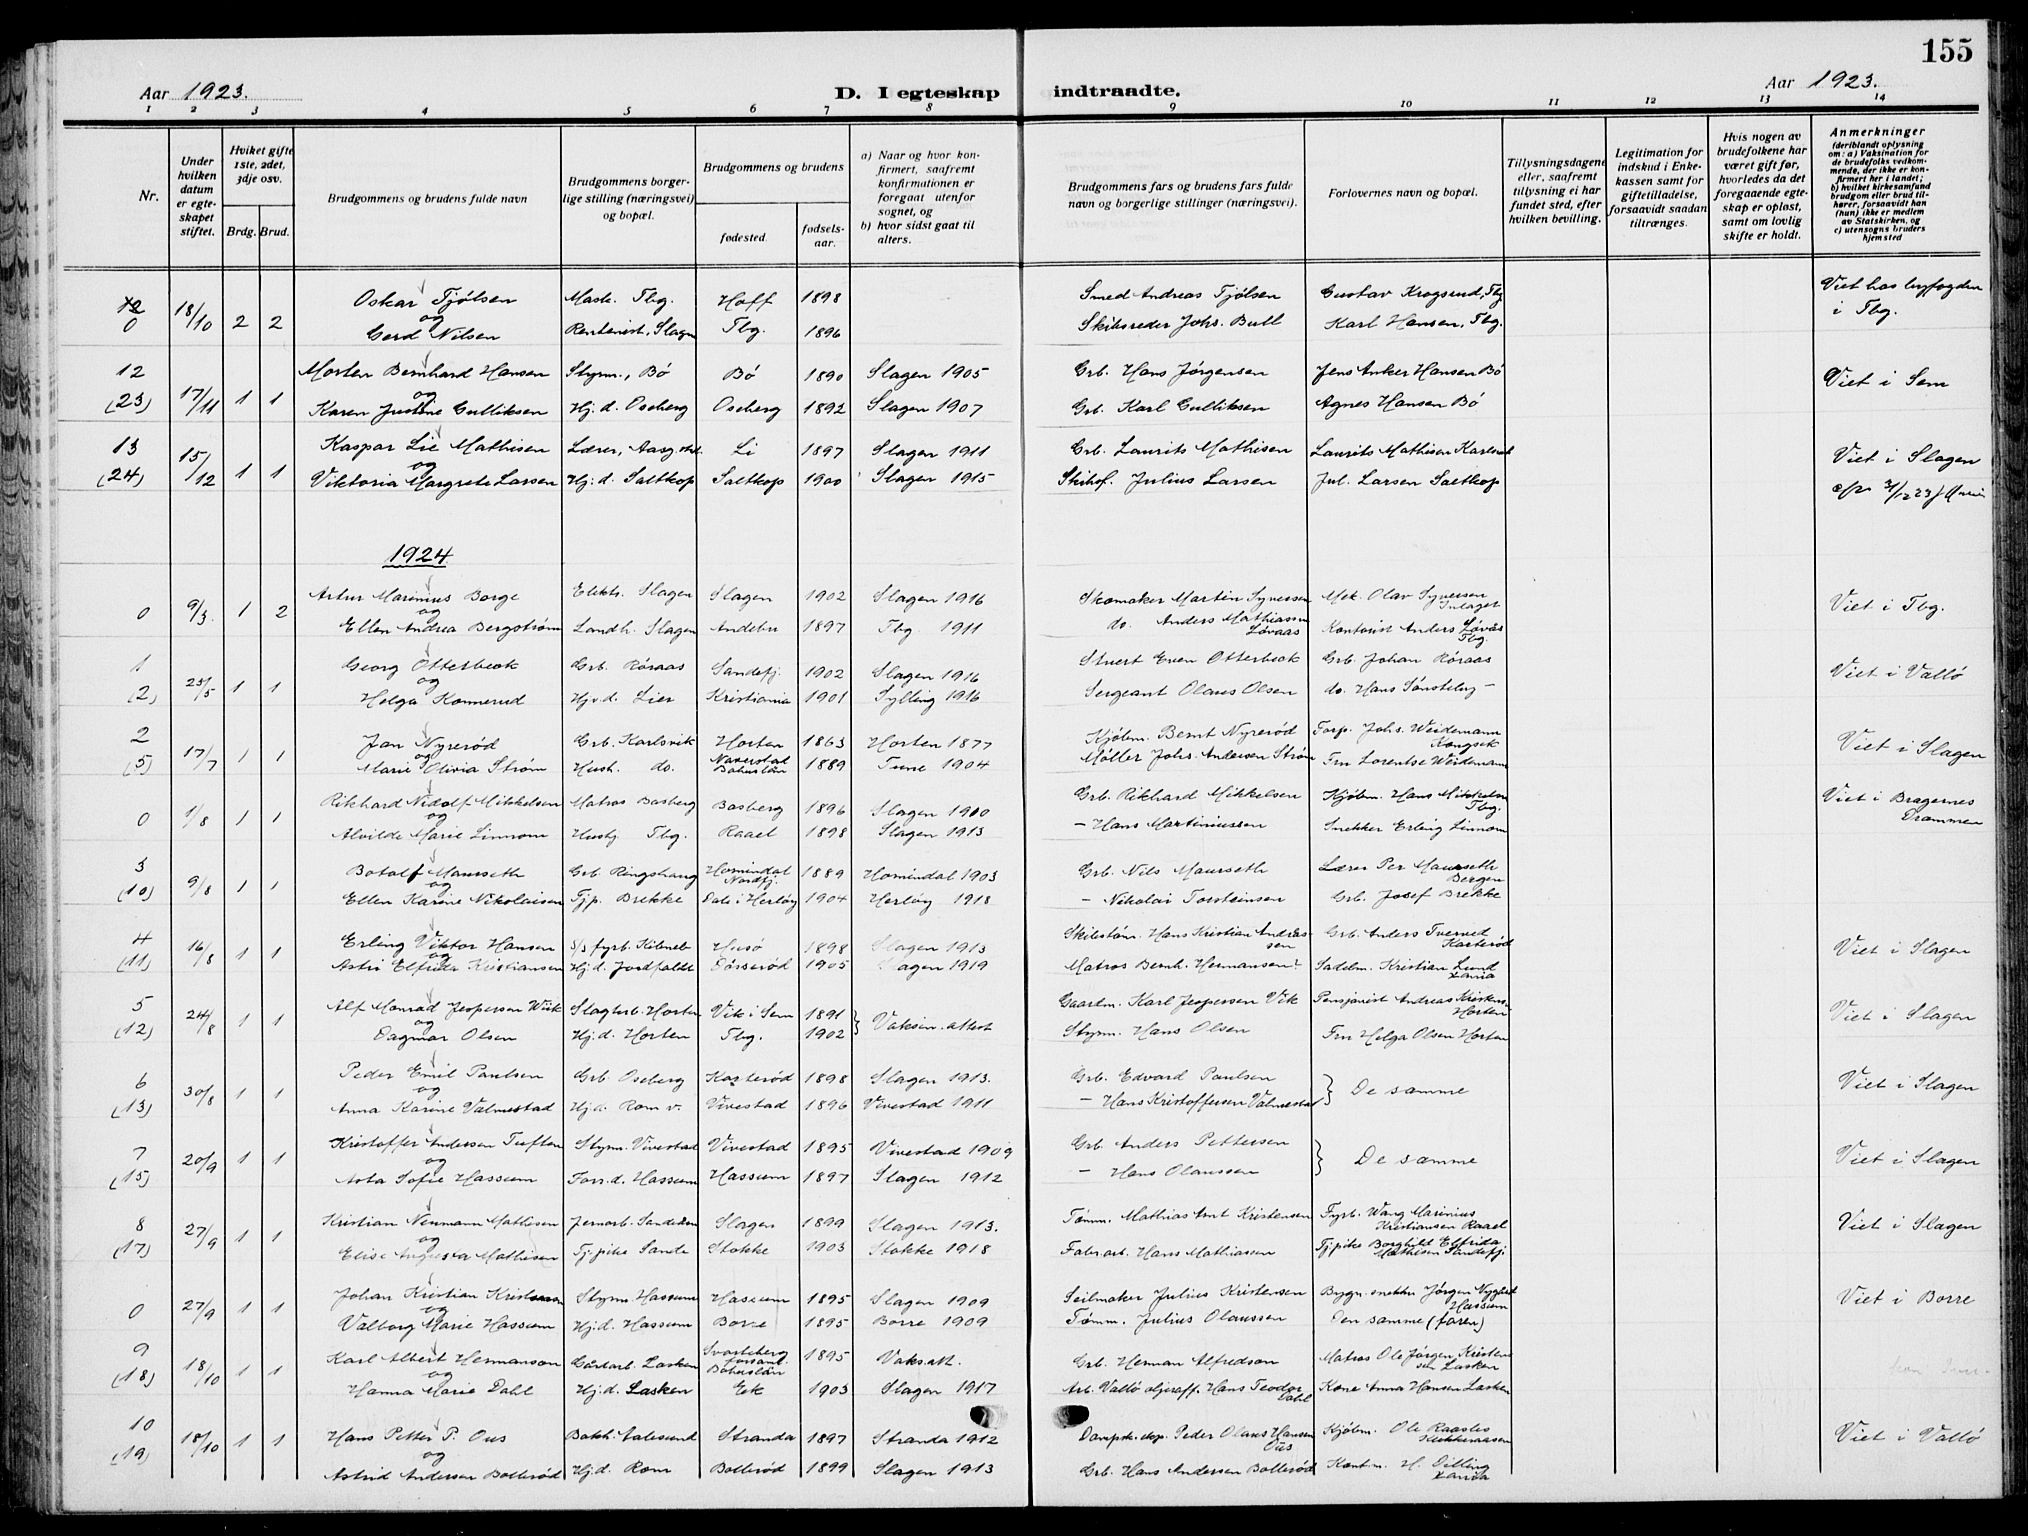 155
Aar 1923.
D. I egteskap indtraadte.
Aar 1923.
1 2 3 4 5 6 7 8 9 10 11 12 13 14
Nr.
Under hvilken datum er egteskapet stiftet.
Hviket gifte 1ste, 2det, 3dje osv.
Brdg. Brud.
Brudgommens og brudens fulde navn
Brudgommens borgerlige stilling (næringsvei) og bopæl.
Brudgommens og brudens
fødested.
fødselsaar.
a) Naar og hvor konfirmert, saafremt konfirmationen er foregaat utenfor sognet, og
b) hvor sidst gaat til alters.
Brudgommens fars og brudens fars fulde navn og borgerlige stillinger (næringsvei).
Forlovernes navn og bopæl.
Tillysningsdagene eller, saafremt tillysning ei har fundet sted, efter hvilken bevilling.
Legitimation for indskud i Enkekassen samt for giftetilladelse, forsaavidt saadan tiltrænges.
Hvis nogen av brudefolkene har været gift før, hvorledes da det foregaaende egteskap er opløst, samt om lovlig skifte er holdt.
Anmerkninger (deriblandt oplysning om: a) Vaksination for de brudefolks vedkommende, der ikke er konfirmert her i landet; b) hvilket kirkesamfund brudgom eller brud tilhører, forsaavidt han (hun) ikke er medlem av Statskirken, og c) utensogns bruders hjemsted
0 18/10 2 2 Oskar Tjølsen Mask. Tbg. Hoff 1898 Smed Andreas Tjølsen Gustav Krogsrud, Tbg Viet hos byfogden
og
Gerd Nilsen Rentenist, Slagen Tbg. 1896 Skibsreder Johs. Bull Karl Hansen, Tbg. i Tbg.
12 Morten Bernhard Hansen Styrm., Bø Bø 1890 Slagen 1905 Grb. Hans Jørgensen Jens Anker Hansen Bø Viet i Sem
(23) 17/11 1 1 og
Karen Justine Gulliksen Hj. d. Oseberg Oseberg 1892 Slagen 1907 Grb. Karl Gulliksen Agnes Hansen Bø
13 15/12 Kaspar Lie Mathisen Lærer, Li 1897 Slagen 1911 Grb. Laurits Mathisen Laurits Mathisen Karlsvik Viet i Slagen
(24) 1 1 og
Viktoria Margrete Larsen Hj. d. Saltkop Saltkop 1900 Slagen 1915 Skibsf. Julius Larsen Jul. Larsen Saltkop 31/12 23
1924
0 9/3 1 2 Artur Marinius Borge Elektr. Slagen Slagen 1902 Slagen 1916 Skomaker Martin Syversen Mek. Olav Syversen Viet i Tbg.
og
Ellen Andrea Bergstrøm Landh. Slagen Andebu 1897 Tbg. 1911 do. Anders Mathiassen Løvaas Kontorist Anders Løvås Tbg.
1 Georg Otterbeck Grb. Røraas Sandefj. 1902 Slagen 1916 Stuert Even Otterbeck Grb. Johan Røraas Viet i Vallø
(2) 25/5 1 1 og
Helga Konnerud Hj.v.d. Lier Kristiania 1901 Sylling 1916 Sergeant Olaus Olsen do. Hans Sønsteby -
2 Jan Nyrerød Grb. Karlsvik Horten 1863 Horten 1877 Kjøbm. Bernt Nyrerød Forp. Johs. Weidemann Viet i Slagen
(5) 17/7 1 1 og
Marie Olivia Strøm Hush. do. Naverstad Bohuslän 1889 Tune 1904 Møller Johs. Andersen Strøm Fru Lorentse Weidemann
0 1/8 1 1 Rikhard Nidolf Mikkelsen Matros Basberg Basberg 1896 Slagen 1910 Grb. Rikhard Mikkelsen Kjøbm. Hans Mikkelsen Tbg. Viet i Bragernes Drammen
og
Alvilde Marie Linnom Hustj. Tbg. Raael 1898 Slagen 1913 - Hans Martiniussen Snekker Erling Linnom
3 Botolf Maurseth Grb Ringshaug Homindal Nordfj. 1889 Homindal 1903 Grb. Nils Maurseth Lærer Per Maurseth Bergen
(10) 9/8 1 1 og
Ellen Karine Nikolaisen Tjp. Brekke Dale i Herløy 1904 Herløy 1918 - Nikolai Torsteinsen Grb. Josef Brekke
4 Erling Viktor Hansen Husø 1898 Slagen 1913 Skibstøm. Hans Kristian Andreassen Grb. Anders Tuerud Karterød Viet i Slagen
(11) 16/8 1 1 og
Astri Elfrida Kristiansen Hj. d. Jordfaldt 1905 Slagen 1919 Matros Bernh. Hermansen Sadelm. Kristian Lund
5 Alf Monrad Jespersen Wiik Slagterb. Horten Vik i Sem 1891 } Vaksin. attest Gaarbr. Karl Jespersen Vik Pensjonist Andreas Kristens. Horten Viet i Slagen
(12) 24/8 1 1 og
Dagmar Olsen Hj. d. Horten Tbg. 1902 Styrm. Hans Olsen Fru Helga Olsen Horten
6 Peder Emil Paulsen Grb. Oseberg Karterød 1898 Slagen 1913. Grb. Edvard Paulsen } De samme Viet i Slagen
(13) 30/8 1 1 og
Anna Karine Valmestad Hj. d. Rom v. Vivestad 1896 Vivestad 1911 - Hans Kristoffersen Valmestad
7 Kristoffer Andersen Tuften Styrm. Vivestad Vivestad 1895 Vivestad 1909 Grb. Anders Pettersen } De samme Viet i Slagen
(15) 20/9 1 1 og
Asta Sofie Hassum Forr. d. Hassum Hassum 1897 Slagen 1912 - Hans Olaussen
8 Kristian Neumann Mathisen Jernarb. Sandeken Slagen 1899 Slagen 1913. Tømm. Mathias Amt Kristensen Fyrb. Wang Marinius Kristiansen Raael Viet i Slagen
(17) 27/9 1 1 og
Elise Augusta Mathisen Tj. pike Sande Stokke 1903 Stokke 1918 Fabr.arb. Hans Mathiassen Tj. pike Borghild Elfrida Mathisen Sandefj.
0 27/9 1 1 Johan Kristian Kristensen Styrm Hassum Hassum 1895 Slagen 1909 Seilmaker Julius Kristensen Bygn. snekker Jørgen Hassum Viet i Borre
og
Valborg Marie Hassum Hj. d. Hassum Borre 1895 Borre 1909 Tømm. Julius Olaussen Den samme (faren)
9 Karl Albert Hermanson Gårdarb. Lasken Svarteborg forsaml. Bohuslän 1895 Vaks. att. Grb. Herman Alfredson Matros Ole Jørgen Kristensen Lasken
(18) 18/10 1 1 og
Hanna Marie Dahl Hj. d. Lasken Eik 1903 Slagen 1917 Arb. Vallø oljeraff. Hans Teodor Dahl Kone Anna Hansen Lasken
10 Hans Petter P. Ous Bokh. Aalesund Stranda 1897 Stranda 1912 Dampsk. eksp. Peder Olaus Hansen Ous Kjøbm. Ole Viet i Vallø
(19) 18/10 1 1 og
Astrid Andersen Bollerød Hj. d. Rom Bollerød 1899 Slagen 1913 Grb. Hans Andersen Bollerød